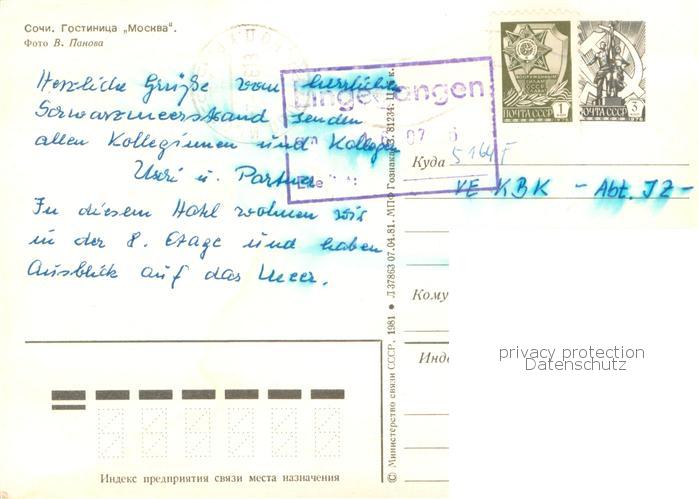 Сочи. Гостиница „Москва".
Фото В. Панова
Herzliche Grüße vom herrlichen
Schwarzmeerstrand senden
allen Kolleginnen und Kollegen
Uschi u. Partner
In diesem Hotel wohnen wir
in der 8. Etage und haben
Ausblick auf das Meer.
Eingegangen
ПОЧТА СССР 1
ПОЧТА СССР 3
1976
Куда
5164 F
VE KBK - Abt. JZ -
Кому
Инде
privacy protection
Datenschutz
Индекс предприятия связи места назначения
© Министерство связи СССР, 1981 ● Л 37863 07.04.81. МПФ Гознака. З. 81234. Ц. 4 к.